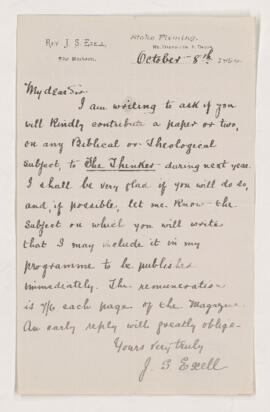 Rev J. S. Exell,
The Rectory.
Stoke Fleming,
October 8th
My dear Sir.
I am writing to ask if you
will kindly contribute a paper or two,
on any Biblical or Theological
subject, to The Thinker during next year.
I shall be very glad if you will do so,
and, if possible, let me know the
subject on which you will write
that I may include it in my
programme to be published
immediately. The remuneration
is 7/6 each page of the Magazine.
An early reply will greatly oblige
Yours very truly
J. S. Exell